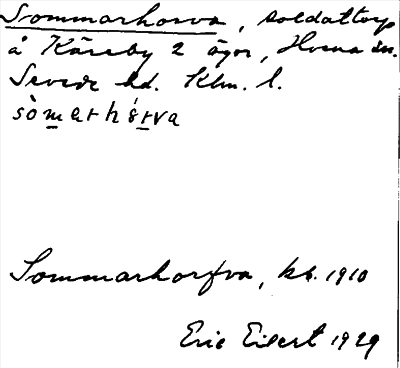 Sommarhorva, soldattorp
å Käreby 2 ägor, Hvena sn.
Sevede hd. Klm. l.
sòmarhórva
Sommarhorfva, kb. 1910
Eric Eilert 1929